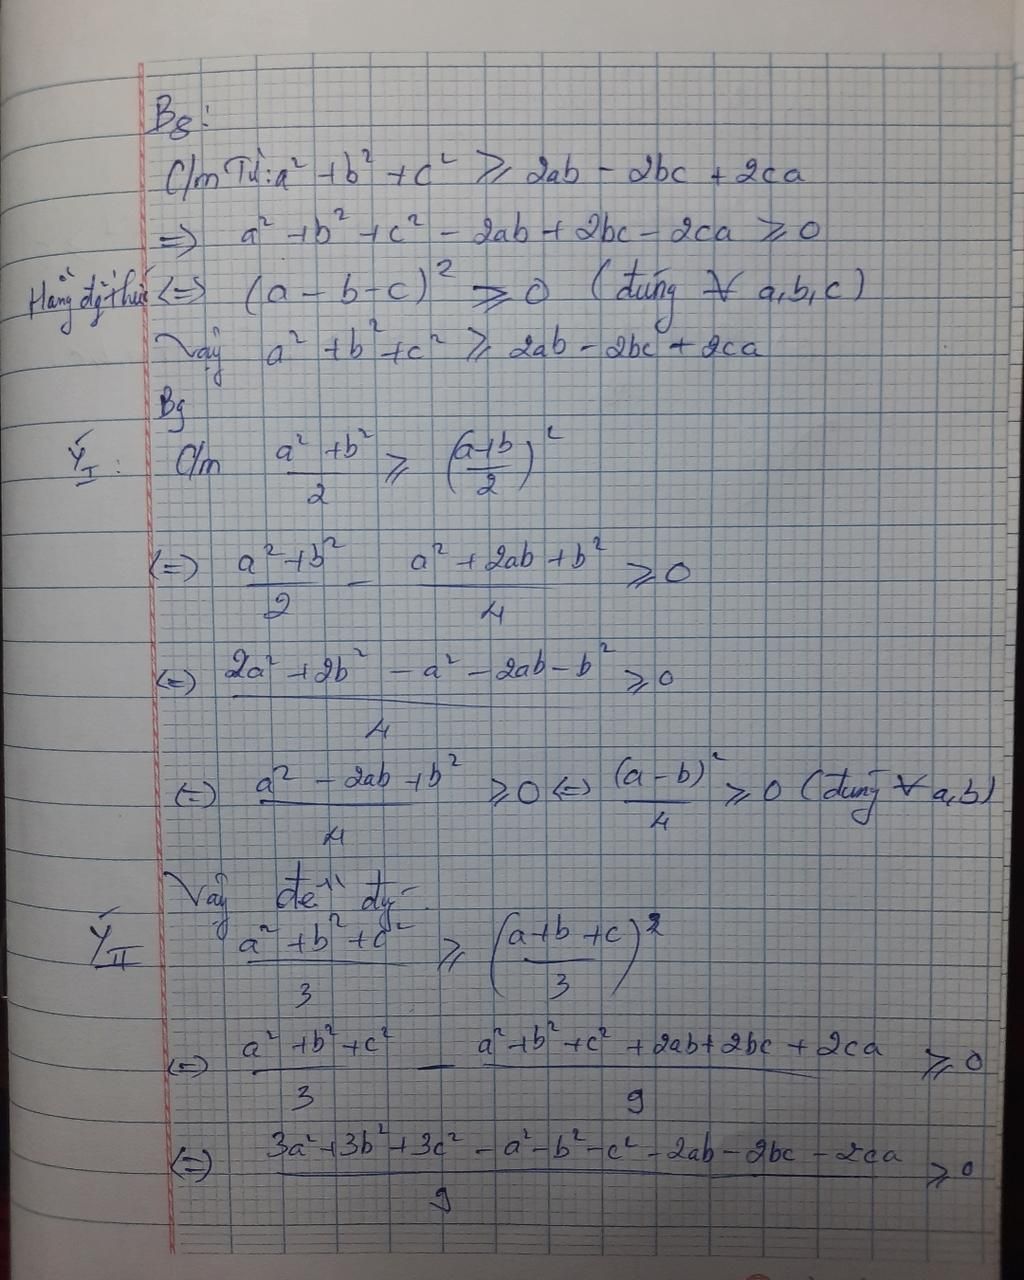 Bg:
C/m Từ: a² + b² + c² ≥ 2ab - 2bc + 2ca
=> a² + b² + c² - 2ab + 2bc - 2ca ≥ 0
Hằng đg thức <=> (a - b - c)² ≥ 0 (đúng ∀ a, b, c)
Vậy a² + b² + c² ≥ 2ab - 2bc + 2ca
Bg
Ý I: C/m (a² + b²)/2 ≥ ((a+b)/2)²
<=> (a² + b²)/2 - (a² + 2ab + b²)/4 ≥ 0
<=> (2a² + 2b² - a² - 2ab - b²)/4 ≥ 0
<=> (a² - 2ab + b²)/4 ≥ 0 <=> (a - b)²/4 ≥ 0 (đúng ∀ a, b)
Vậy
Ý II (a² + b² + c²)/3 ≥ ((a + b + c)/3)²
<=> (a² + b² + c²)/3 - (a² + b² + c² + 2ab + 2bc + 2ca)/9 ≥ 0
<=> (3a² + 3b² + 3c² - a² - b² - c² - 2ab - 2bc - 2ca)/9 ≥ 0